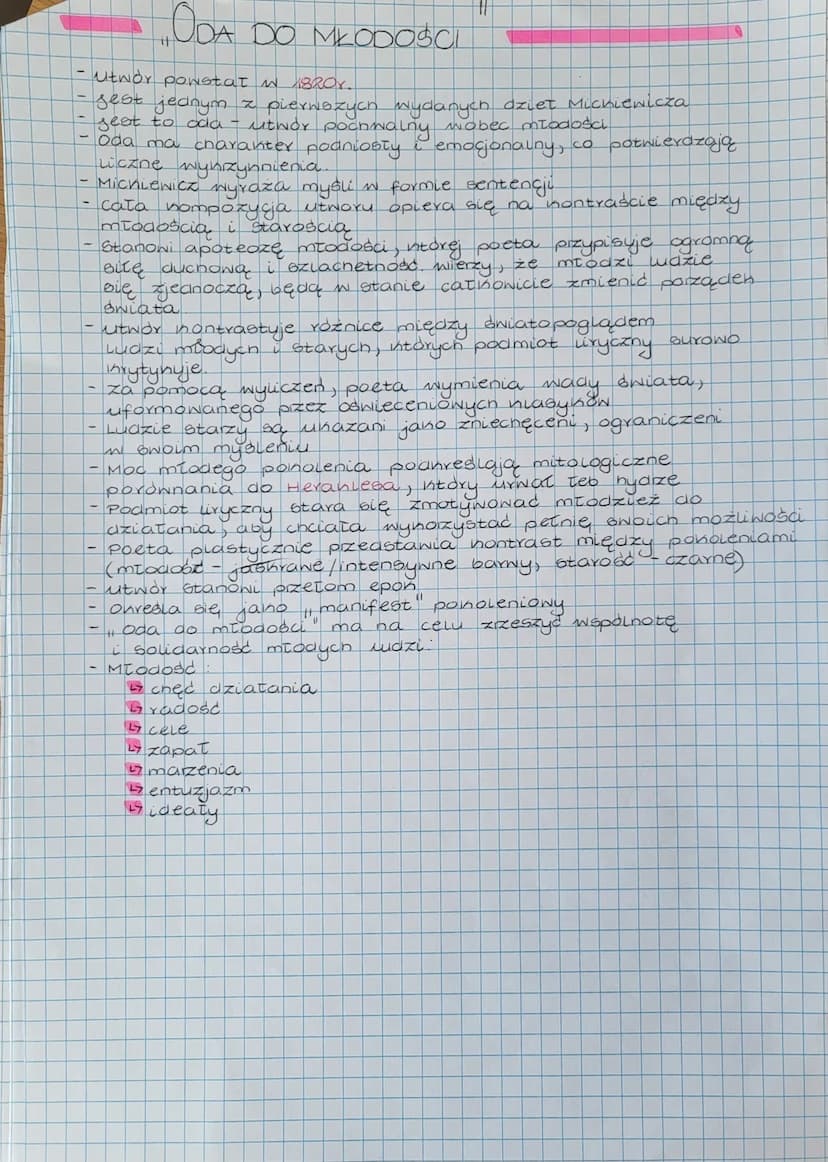 „ODA DO MŁODOŚCI"
- utwór powstał w 1820r.
- jest jednym z pierwszych wydanych dzieł Mickiewicza
- jest to oda - utwór pochwalny wobec młodości
- Oda ma charakter podniosły i emocjonalny, co potwierdzają
liczne wykrzyknienia.
- Mickiewicz wyraża myśli w formie sentencji
- cała kompozycja utworu opiera się na kontraście między
młodością i starością
- stanowi apoteozę młodości, której poeta przypisuje ogromną
siłę duchową i szlachetność. wierzy, że młodzi ludzie
się zjednoczą, będą w stanie całkowicie zmienić porządek
świata
- utwór kontrastuje różnice między światopoglądem
ludzi młodych i starych, których podmiot liryczny surowo
krytykuje.
- za pomocą wyliczeń, poeta wymienia wady świata,
uformowanego przez oświeceniowych klasyków
- Ludzie starzy są ukazani jako zniechęceni, ograniczeni
w swoim myśleniu
- Moc młodego pokolenia podkreślają mitologiczne
porównania do Heraklesa, który urwał łeb hydrze
- Podmiot liryczny stara się zmotywować młodzież do
działania, aby chciała wykorzystać pełnię swoich możliwości
- poeta plastycznie przedstawia kontrast między pokoleniami
(młodość - jaskrawe/intensywne barwy, starość - czarne)
- utwór stanowi przełom epok
- określa się jako „manifest" pokoleniowy
- „Oda do młodości" ma na celu zrzeszyć wspólnotę
i solidarność młodych ludzi.
- Młodość:
↳ chęć działania
↳ radość
↳ cele
↳ zapał
↳ marzenia
↳ entuzjazm
↳ ideały